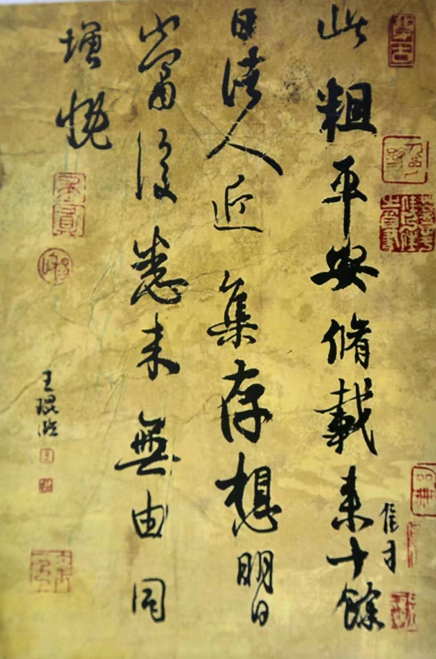 此粗平安脩載来十餘
日諸人近集存想明日
當復悉来無由同
增慨
王琨